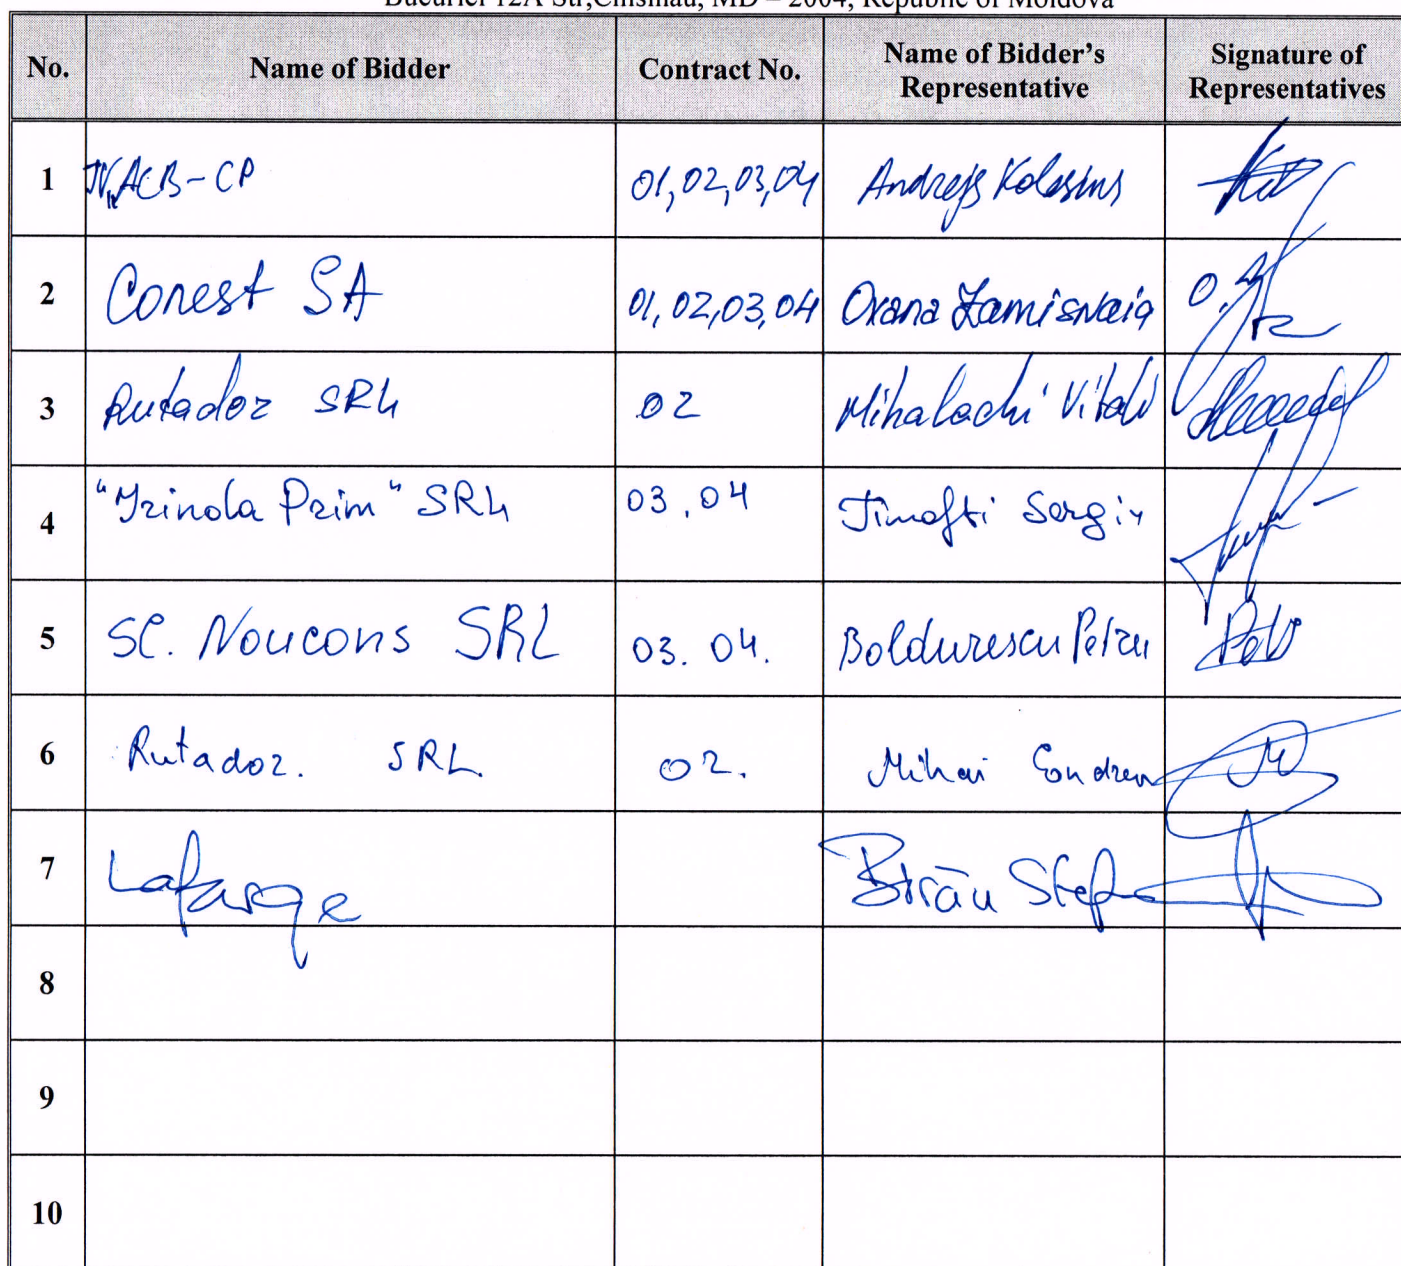 Bucuriei 12A Str,Chisinau, MD – 2004, Republic of Moldova
No. Name of Bidder Contract No. Name of Bidder's Representative Signature of Representatives
1 JV "ACB-CP 01,02,03,04 Andrejs
2 Conest SA 01,02,03,04 Oxana Zamisnaia
3 Rutador SRL 02 Mihalachi Vitali
4 "Irinola Prim" SRL 03.04 Timofti Sergiu
5 SC. Noucons SRL 03. 04. Boldurescu Petru
6 Rutador. SRL. 02. Mihai
7 Lafarge
8
9
10